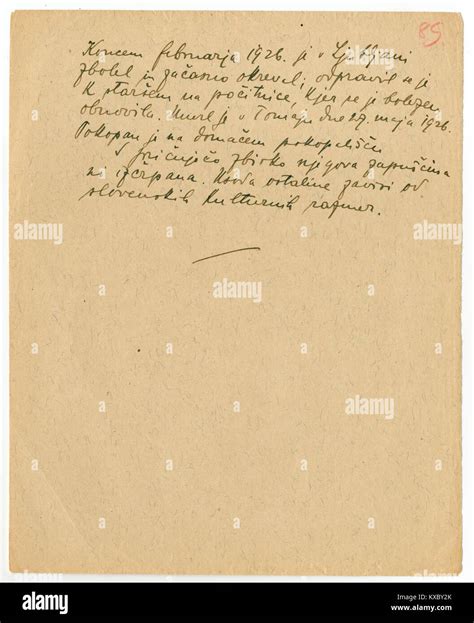 85
Koncem februarja 1926. je v Ljubljani
zbolel in začasno okreval; odpravil se je
k staršem na počitnice, kjer se je bolezen
obnovila. Umrl je v Tomaju dne 27. maja 1926.
Pokopan je na domačem pokopališču
S pričujočo zbirko njegova zapuščina
ni izčrpana. Usoda ostaline zavisi od
slovenskih kulturnih razmer.
alamy
Image ID: KXBY2K
www.alamy.com